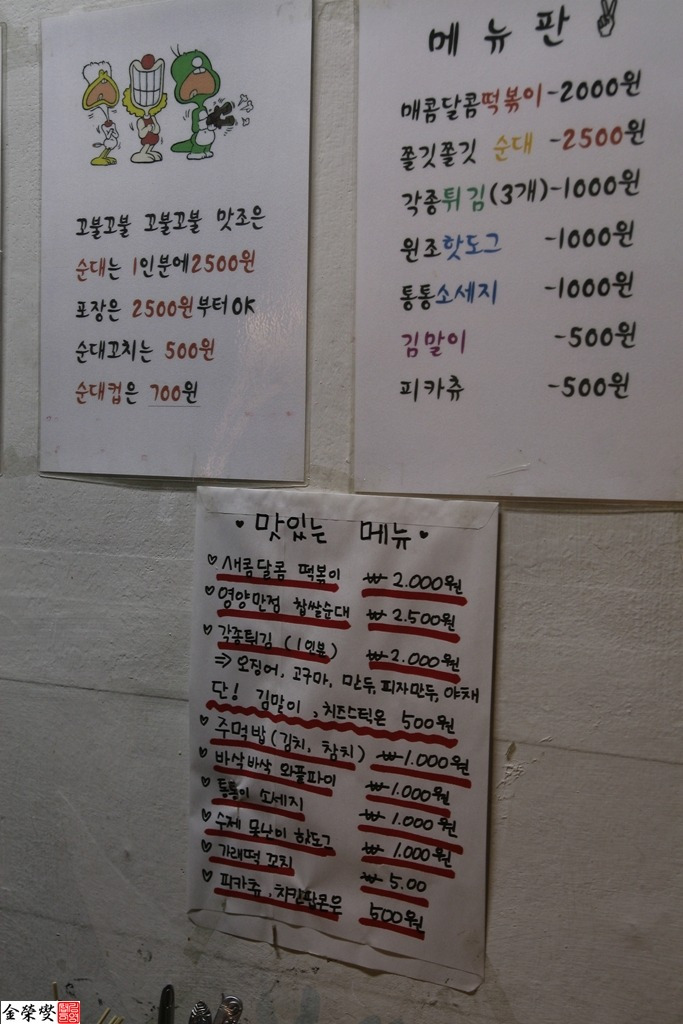 꼬불꼬불 꼬불꼬불 맛조은
순대는 1인분에2500원
포장은 2500원부터OK
순대꼬치는 500원
순대컵은 700원
메뉴판
매콤달콤떡볶이-2000원
쫄깃쫄깃 순대 -2500원
각종튀김(3개)-1000원
원조핫도그 -1000원
통통소세지 -1000원
김말이 -500원
피카츄 -500원
맛있는 메뉴
새콤달콤 떡볶이 ₩2.000원
영양만점 찹쌀순대 ₩2.500원
각종튀김 (1인분) ₩2.000원
⇒ 오징어, 고구마, 만두, 피자만두, 야채
단! 김말이, 치즈스틱은 500원
주먹밥(김치, 참치) ₩1.000원
바삭바삭 와플파이 ₩1.000원
통통이 소세지 ₩1.000원
수제 못난이 핫도그 ₩1.000원
가래떡 꼬치 ₩5.00
피카츄, 치킨팝콘은 500원
金榮燮